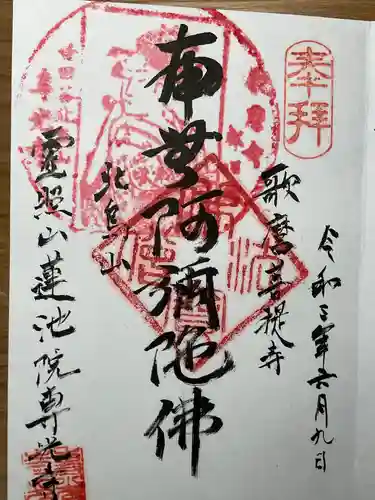 奉拝
令和三年六月九日
歌麿菩提寺
南無阿彌陀佛
北烏山
靈照山蓮池院専光寺